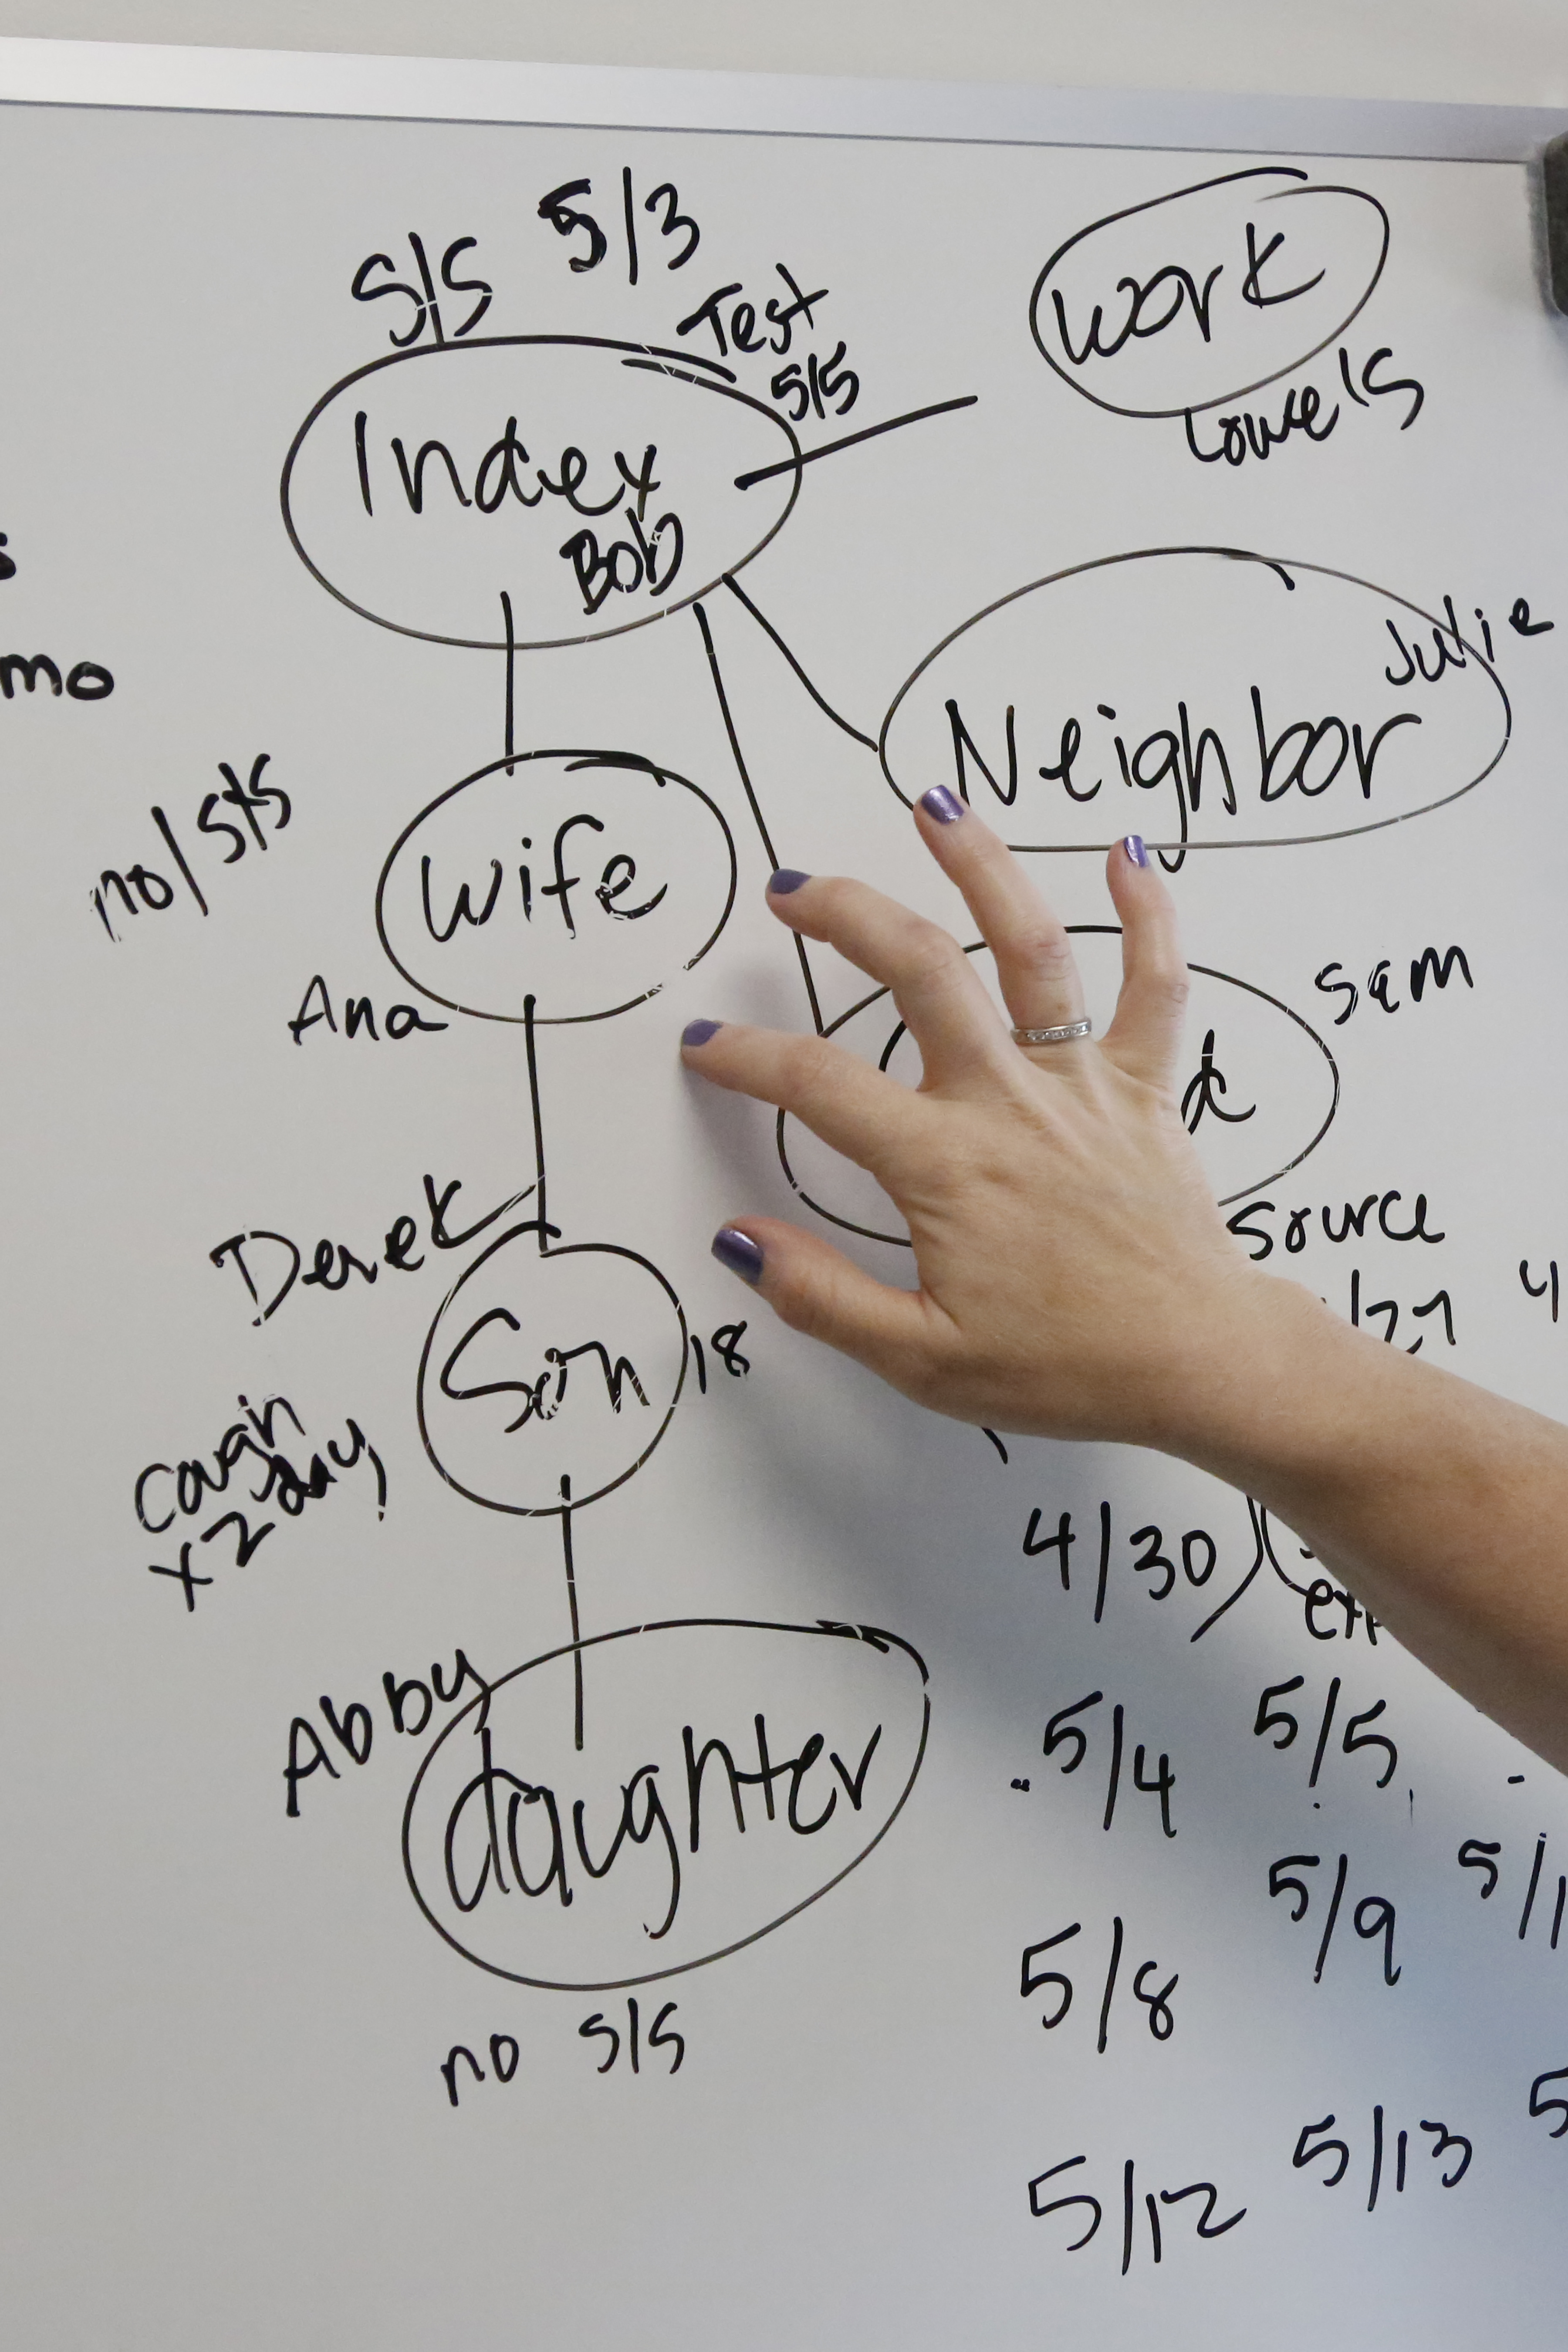 S/S 5/3
Test
5/5
Work
Lowe's
Index
Bob
Julie
Neighbor
mo
no/ S/S
Wife
Ana
Sam
Source
/27
Derek
Son
18
cough
x2 day
4/30
Abby
daughter
no S/S
5/4
5/5
5/8
5/9
5/12
5/13